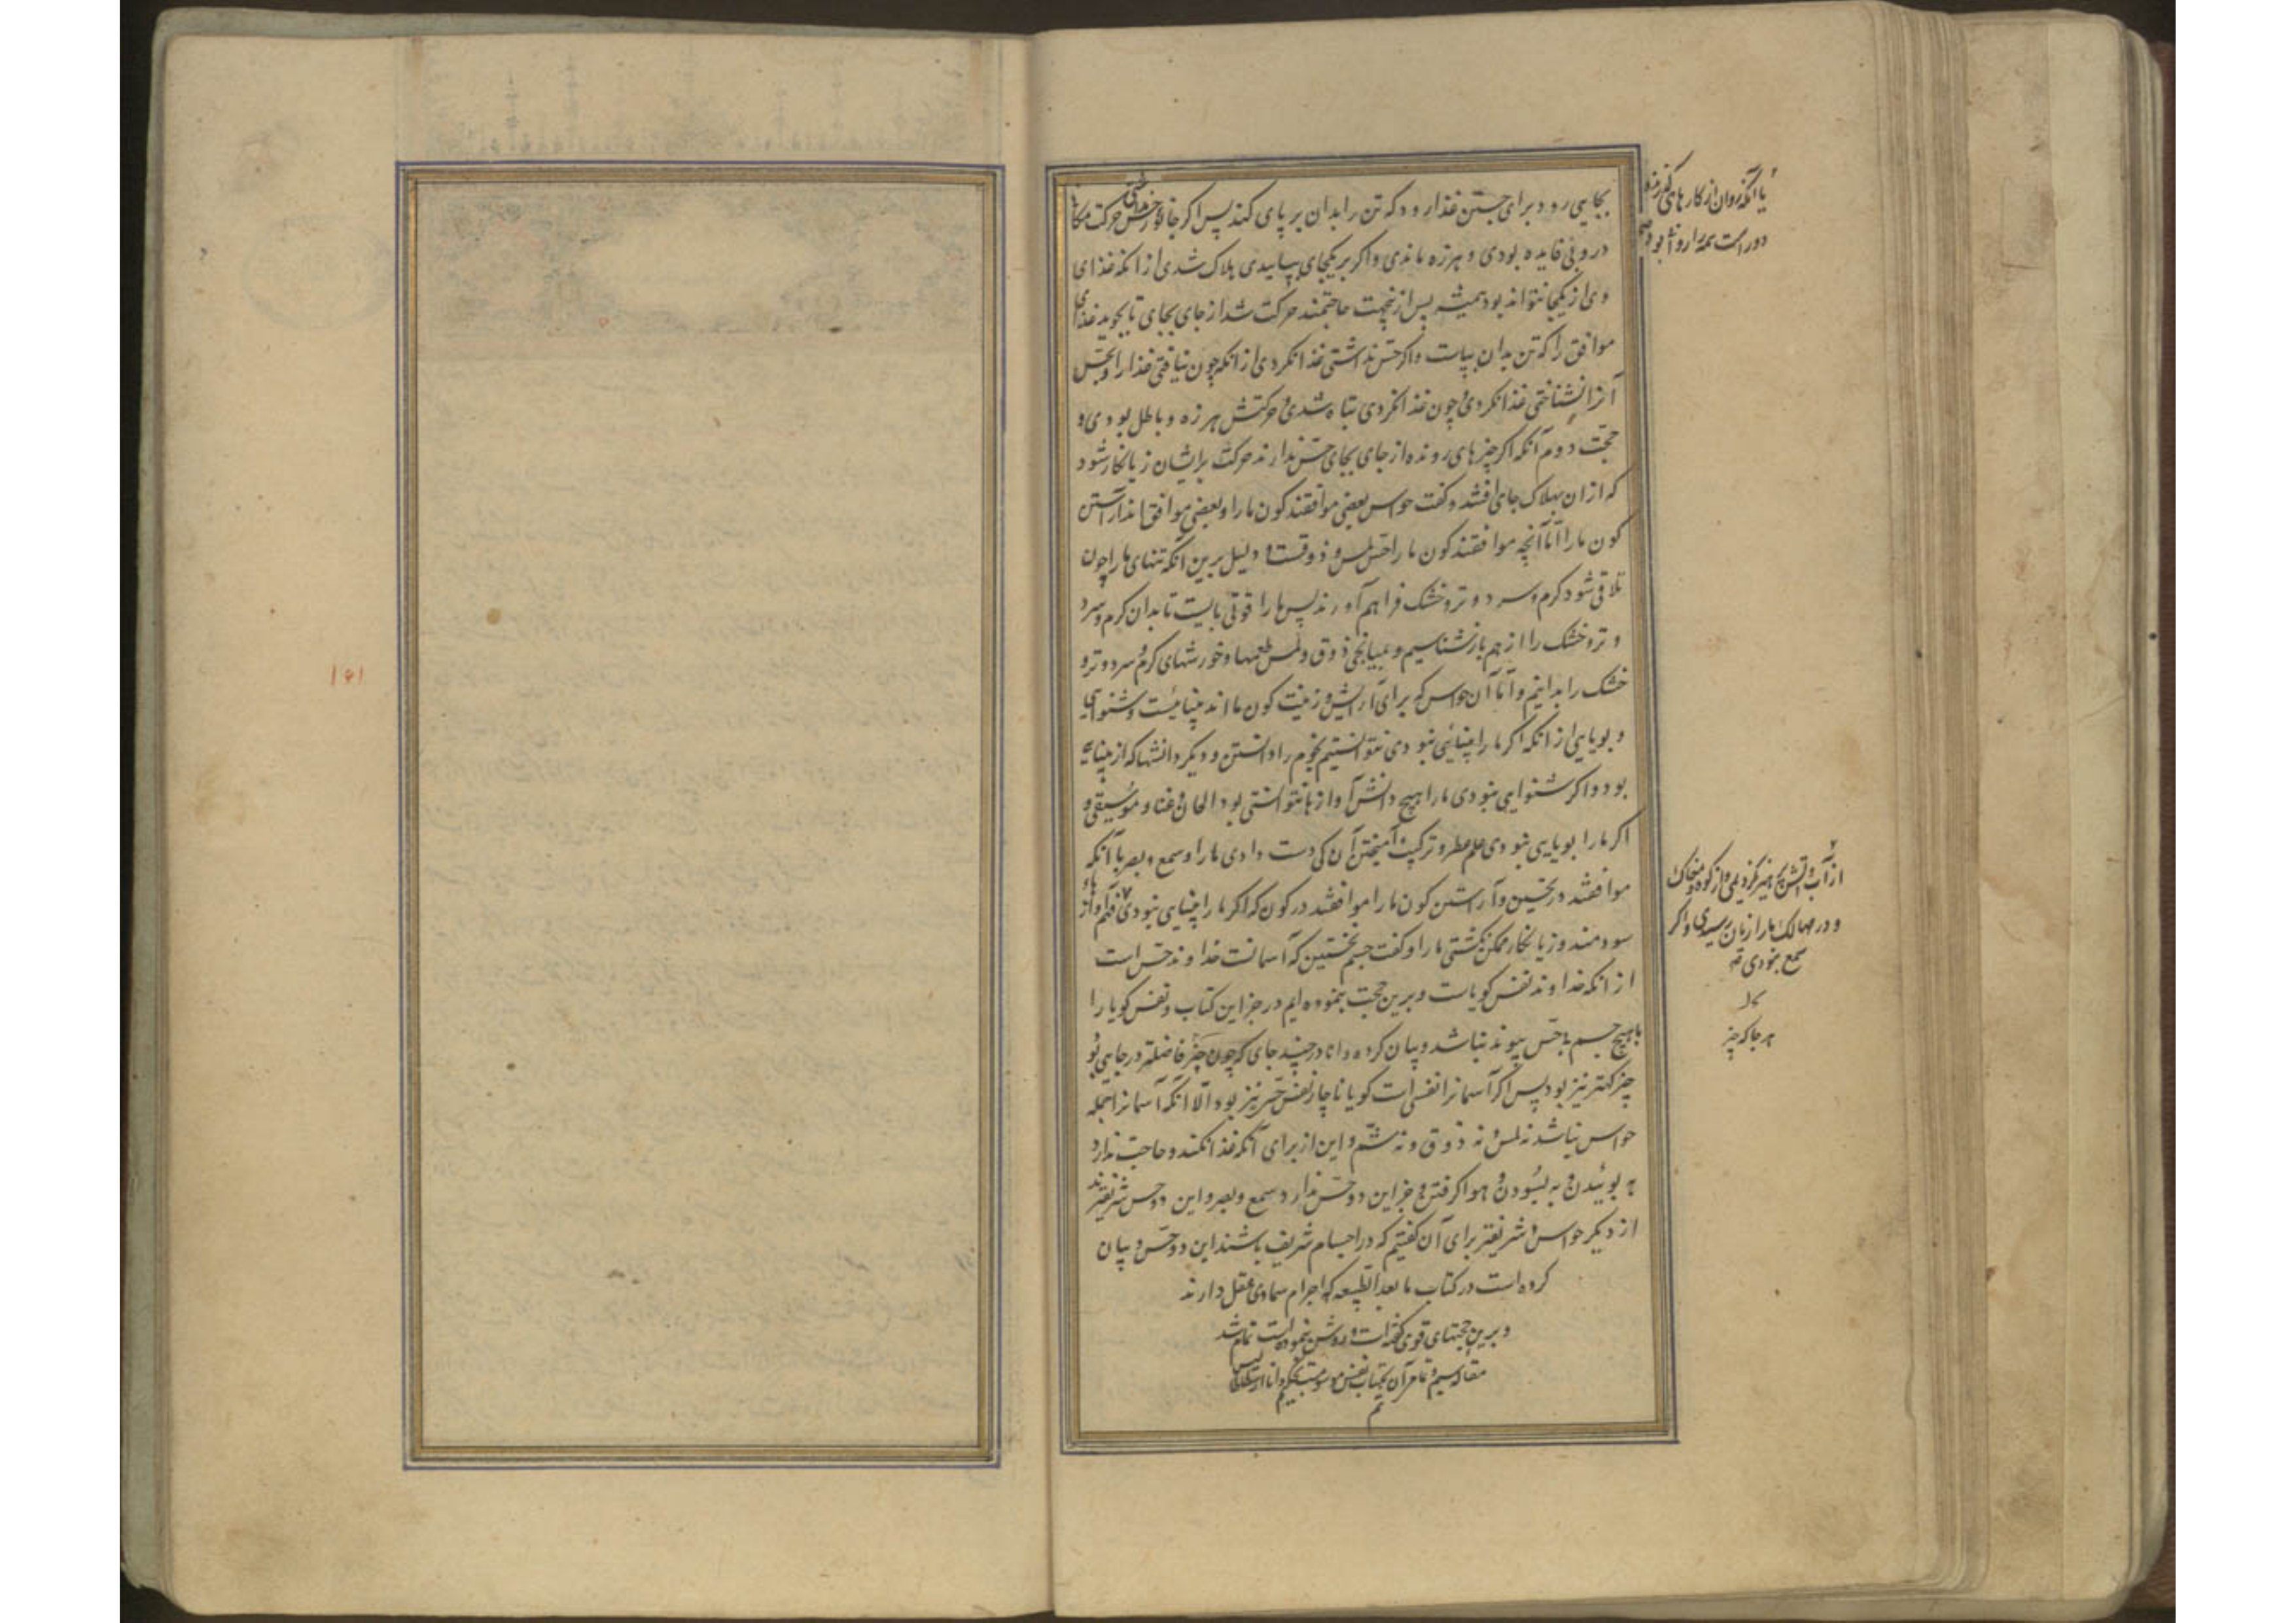 بجایی رود برای جستن غذا رود که تن را بدان بر پای کند پس اگر جانور حس نداشتی حرکت مکانی
درو بی فایده بودی و هرزه ماندی و اگر بر یکجای بپاییدی هلاک شدی از انکه غذای
وی از یکجا نتواند بود همیشه پس از نجهت حاجتمند حرکت شد از جای بجای تا بجوید غذای
موافق را که تن بدان بپاست و اگر حس نداشتی غذا نکردی از انکه چون نیافتی غذا را و بحس
آنرا نشناختی غذا نکردی و چون غذا نکردی تباه شدی و حرکتش هرزه و باطل بودی و
حجّت دوم آنکه اگر چیزهای رونده از جای بجای حسّ ندارند حرکت برایشان زیانکار شود
که ازان بهلاک جای افتند و گفت حواس بعضی موافقند کون ما را و بعضی موافق اند آراستن
کون ما را امّا آنچه موافقند کون ما را حسّ لمس و ذوقست و دلیل برین آنکه تنهای ما را چون
تلاقی شود گرم و سرد و تر و خشک فراهم آورند پس ما را قوتی بایست تا بدان گرم و سرد
و تر و خشک را از هم بازشناسیم و بمیانجی ذوق و لمس طعمها و خورشهای گرم و سرد و تر و
خشک را بدانیم و امّا آن حواس که برای آرایش و زینت کون ما اند بینائیست و شنوایی
و بویایی از انکه اگر ما را بینائی نبودی نتوانستیم نجوم را دانستن و دیگر دانشها که از بینایی
بود و اگر شنوایی نبودی ما را هیچ دانش آوازها نتوانستی بود الحان و غنا و موسیقی و
اگر ما را بویایی نبودی علم عطر و ترکیب و آمیختن آن کی دست دادی ما را و سمع و بصر با آنکه
موافقند در تحسین و آراستن کون ما را موافقند در کون که اگر ما را بینایی نبودی فهم آواز
سودمند و زیانکار ممکن نگشتی ما را و گفت جسم نخستین که آسمانست خداوند حس است
از انکه خداوند نفس گویاست و برین حجت بنموده ایم در جز این کتاب و نفس گویا را
با هیچ جسم ناحس پیوند نباشد و بیان کرده دانا در چند جای که چون چیز فاضلتر در جایی بود
چیز کهتر نیز بود پس اگر آسمانرا نفسی است گویا ناچار نفس حس نیز بود الّا آنکه آسمانرا جمله
حواس نباشد نه لمس و نه ذوق و نه شمّ و این از برای آنکه غذا نکند و حاجت ندارد
به بوئیدن و به بسودن و هوا گرفتن و جز این دو حسّ ندارد سمع و بصر و این دو حس شریفترند
از دیگر حواس و شریفتر برای آن گفتیم که در اجسام شریف باشند این دو حسّ و بیان
کرده است در کتاب ما بعد الطبیعه که اجرام سماوی عقل دارند
و برین حجتهای قوی گفته است و روشن بنموده است تمام شد
مقاله سیم و تمامی آن کتاب نفس منسوب بحکیم دانا ارسطاطالیس
تم
یا آنکه روان از کارهای
دور است همه را روا بود
از آب و آتش پرهیز نکردیمی و از کوه و مغاک
و در مهالک ما را زیان رسیدی و اگر
سمع نبودی
هر جا که چیز
۱۵۱